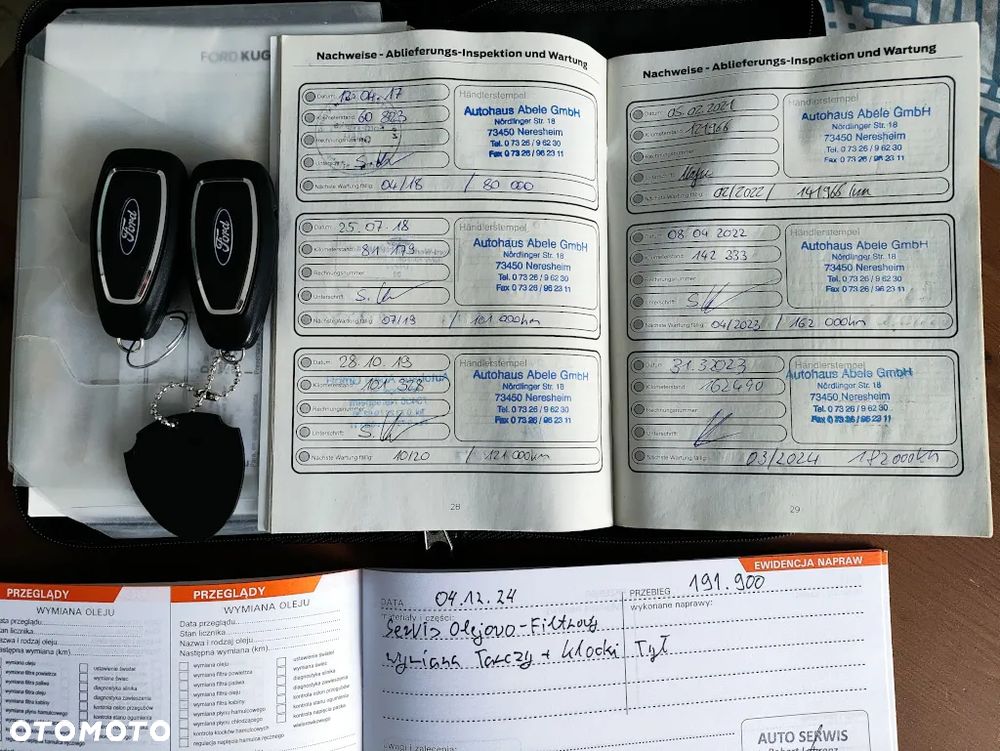 FORD KUG
Ford
Ford
Nachweise - Ablieferungs-Inspektion und Wartung
Datum: 13.04.17
Kilometerstand: 60 823
Unterschrift:
Nächste Wartung fällig: 04/18 / 80 000
Händlerstempel
Autohaus Abele GmbH
Nördlinger Str. 18
73450 Neresheim
Tel. 0 73 26 / 9 62 30
Fax 0 73 26 / 96 23 11
Datum: 25.07.18
Kilometerstand: 81 179
Rechnungsnummer:
Unterschrift:
Nächste Wartung fällig: 07/19 / 101 000km
Händlerstempel
Autohaus Abele GmbH
Nördlinger Str. 18
73450 Neresheim
Tel. 0 73 26 / 9 62 30
Fax 0 73 26 / 96 23 11
Datum: 28.10.19
Kilometerstand: 101 368
Rechnungsnummer:
Unterschrift:
Nächste Wartung fällig: 10/20 / 121 000km
Händlerstempel
Autohaus Abele GmbH
Nördlinger Str. 18
73450 Neresheim
Tel. 0 73 26 / 9 62 30
Fax 0 73 26 / 96 23 11
28
Nachweise - Ablieferungs-Inspektion und Wartung
Datum: 05.02.2021
Kilometerstand: 121966
Rechnungsnummer:
Unterschrift:
Nächste Wartung fällig: 02/2022 / 141966 km
Händlerstempel
Autohaus Abele GmbH
Nördlinger Str. 18
73450 Neresheim
Tel. 0 73 26 / 9 62 30
Fax 0 73 26 / 96 23 11
Datum: 08 04 2022
Kilometerstand: 142 333
Rechnungsnummer:
Unterschrift:
Nächste Wartung fällig: 04/2023 / 162 000km
Händlerstempel
Autohaus Abele GmbH
Nördlinger Str. 18
73450 Neresheim
Tel. 0 73 26 / 9 62 30
Fax 0 73 26 / 96 23 11
Datum: 31.3.2023
Kilometerstand: 162490
Rechnungsnummer:
Unterschrift:
Nächste Wartung fällig: 03/2024 182000km
Händlerstempel
Autohaus Abele GmbH
Nördlinger Str. 18
73450 Neresheim
Tel. 0 73 26 / 9 62 30
Fax 0 73 26 / 96 23 11
29
PRZEGLĄDY
WYMIANA OLEJU
Data przeglądu
Stan licznika
Nazwa i rodzaj oleju
Następna wymiana (km)
wymiana oleju
wymiana filtra powietrza
wymiana filtra paliwa
wymiana filtra oleju
wymiana filtra kabiny
wymiana płynu hamulcowego
ustawienie świateł
wymiana świec
diagnostyka silnika
diagnostyka zawieszenia
kontrola osłon przegubów
kontrola stanu ogumienia
PRZEGLĄDY
WYMIANA OLEJU
Data przeglądu
Stan licznika
Nazwa i rodzaj oleju
Następna wymiana (km)
wymiana oleju
wymiana filtra powietrza
wymiana filtra paliwa
wymiana filtra oleju
wymiana filtra kabiny
wymiana płynu hamulcowego
wymiana płynu chłodzącego
kontrola klocków hamulcowych
regulacja napięcia hamulca ręcznego
ustawienie świateł
wymiana świec
diagnostyka silnika
diagnostyka zawieszenia
kontrola osłon przegubów
kontrola stanu ogumienia
kontrola napięcia paska
wielorowkowego
EWIDENCJA NAPRAW
DATA 04.12.24
PRZEBIEG 191.900
materiały i części:
wykonane naprawy:
Serwis Olejowo-Filtrowy
Wymiana Tarczy + Klocki Tył
Uwagi i zalecenia:
AUTO SERWIS
OTOMOTO